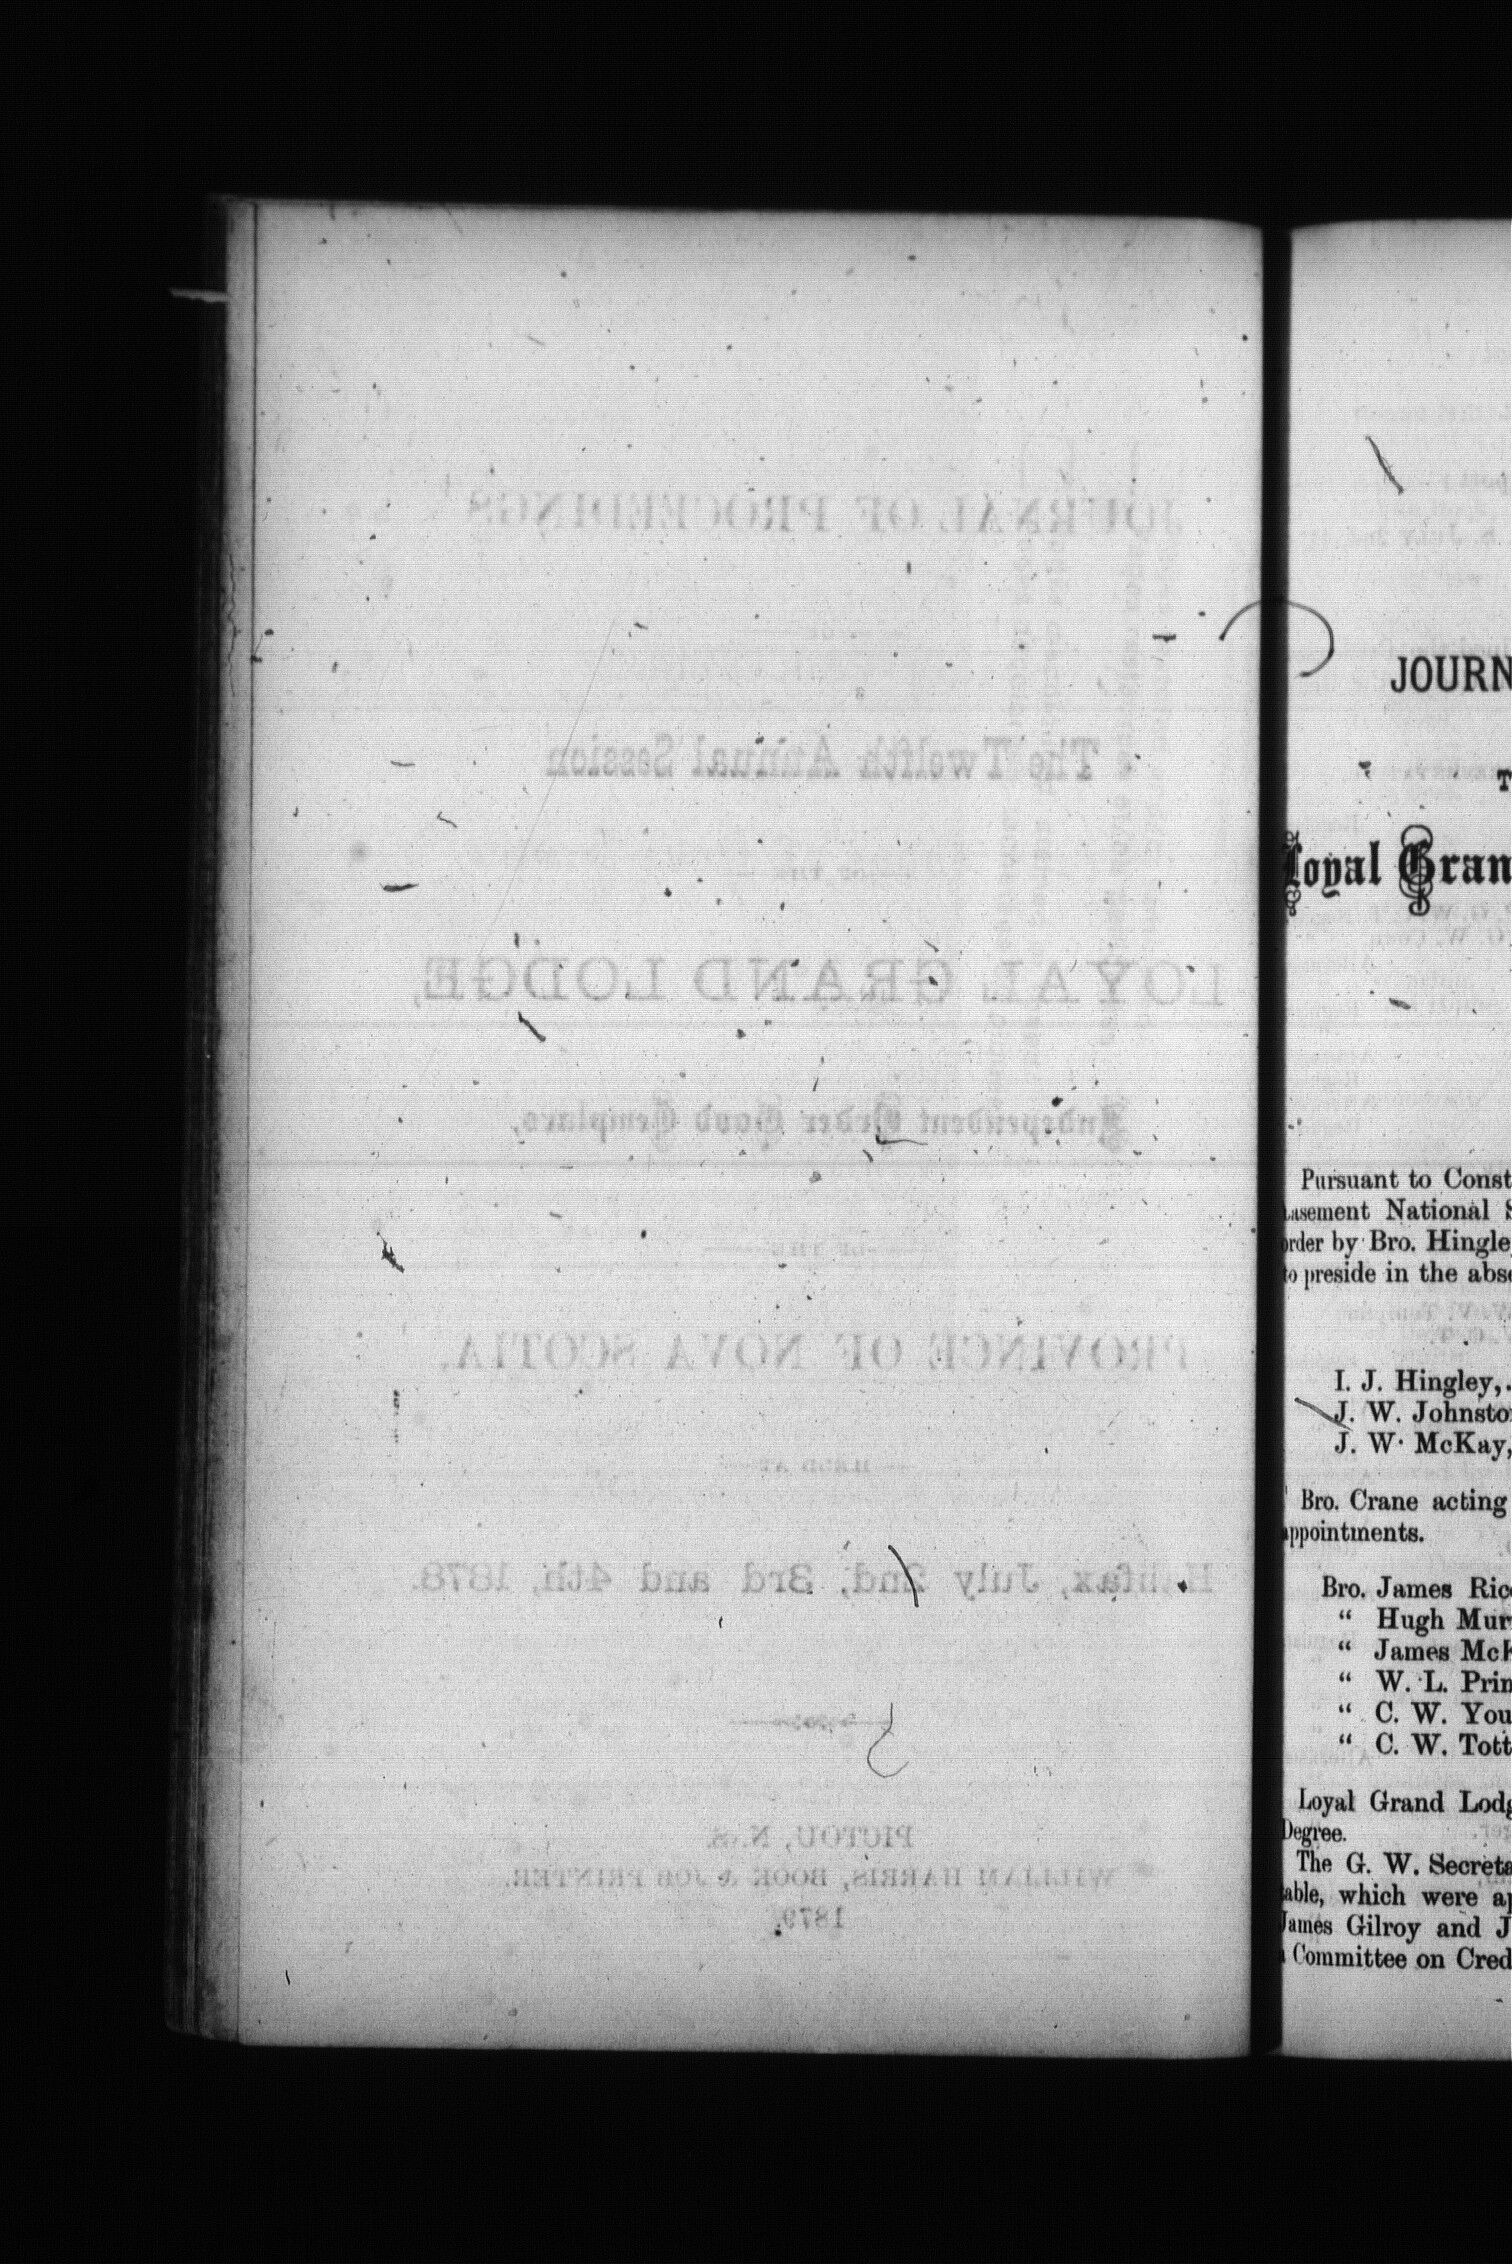 JOURNAL OF PROCEEDINGS
The Twelfth Annual Session
LOYAL GRAND LODGE,
Independent Order Good Templars,
OF THE
PROVINCE OF NOVA SCOTIA,
HELD AT
Halifax, July 2nd, 3rd and 4th, 1878.
PICTOU, N. S.
WILLIAM HARRIS, BOOK & JOB PRINTER.
1879.
JOURN
T
Loyal Gran
Pursuant to Const
Basement National S
order by Bro. Hingle
to preside in the abse
I. J. Hingley,
J. W. Johnsto
J. W. McKay,
Bro. Crane acting
appointments.
Bro. James Ric
“ Hugh Mur
“ James McK
“ W. L. Prin
“ C. W. You
“ C. W. Tott
Loyal Grand Lodg
Degree.
The G. W. Secreta
table, which were ap
James Gilroy and J
a Committee on Cred